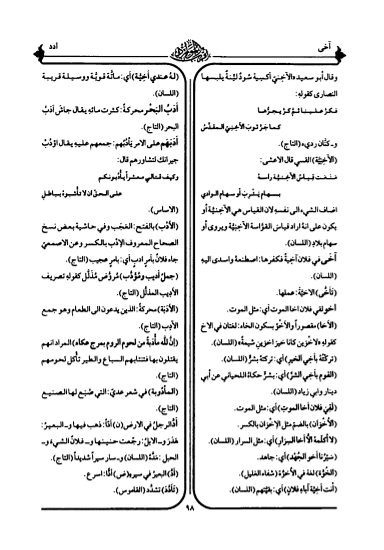 آخى
ادد
وقال أبو سعيد: «الآخِنِيّ أكسية سُودٌ لَيّنةٌ يلبسها
النصارى كقوله:
فكرّ علينا ثمّ كرّ يجرّها
كما جرّ ثوبَ الآخِنيِّ المقدَّس
و ـ كتّان رديء (التاج).
(الآخِنِيّة) القسي قال الاعشى:
منعت قياسُ الآخنيّة رأسه
بسهام يثرب أو سهام الوادي
اضاف الشيء الى نفسه لان القياس هي الآخنيّة أو
يكون على انه اراد قياس القوّاسة الآخنيّة ويروى أو
سهام بلاد (اللسان).
آخَى في فلان آخيةً فكفرها: اصطنعه واسدى اليه
(اللسان).
(تأخّى) الآخيّة: عملها.
أخو لقي فلان اخا الموت) أي: مثل الموت.
(الأخا) مقصوراً والأخْوُ بسكون الخاء: لغتان في الاخ
كقوله «لأخوين كانا خيرَ اخوين شيمةً» (اللسان).
(تركتُه بأخي الخير) أي: تركتهُ بشرٍّ (اللسان).
(القوم بأخي الشرّ) أي: بشرّ حكاهُ اللحياني عن أبي
دينار وابي زياد (اللسان).
(لقي فلان أخا الموت) أي: مثل الموت.
(الأُخْوان) بالضمّ مثل الإخوان بالكسر.
(لا أكلّمه الّا أخا السِرار) أي: مثل السرار (اللسان).
(سَيْرُنا أخو الجَهْد) أي: جاهد.
(الخُوّة) لغة في الأُخوّة (شفاء الغليل).
(أنت أخيّة آباءِ فلانٍ) أي: بقيّتهم (اللسان).
(لهُ عندي أخيّة) أي: ماتّة قويّة ووسيلة قريبة
(اللسان).
أدَبُ البَحْرِ محركة: كثرت مائهِ يقال جاشَ أدَبُ
البحر (التاج).
أدَبَهم على الامر يأدُبُهم: جمعهم عليه يقال اؤدُبْ
جيرانك لتشاورهم قال:
وكيف قتالي معشراً يأدُبونكم
على الحقّ ان لا تأشبوه بباطلِ
(الاساس).
(الأدب) بالفتح: العَجَب وفي حاشية بعض نسخ
الصحاح المعروف الإدْب بالكسر وعن الاصمعيّ
جاء فلانٌ بأمرٍ ادبٍ أي: بامرٍ عجيب (التاج).
(جملٌ أديب ومُؤَدَّب) مُروّض مُذَلَّل كقوله تصريف
الأديب المذلَّل (التاج).
(الأدَبَة) محركة: الذين يدعون الى الطعام وهو جمع
الآدِب (التاج).
(إنّ للّٰه مأدُبةً من لحوم الروم بمرج عكاء) المراد انهم
يقتلون بها فتنتابهم السباع والطير تأكل لحومهم
(التاج).
(المأدُوبة) في شعر عديّ: التي صُنع لها الصنيع
(التاج).
أدَّ الرجلُ في الارض (ن) أدّاً: ذهب فيها و ـ البعيرُ:
هَدَرَ و ـ الابلُ: رجّعت حنينها و ـ فلانٌ الشيءَ و ـ
الحبلَ: مَدّهُ (اللسان) و ـ سار سيراً شديداً (التاج).
(أدّ) البعيرُ في سيره (ض) أدّاً: اسرع.
(تأدّد) تشدّد (القاموس).
٩٨